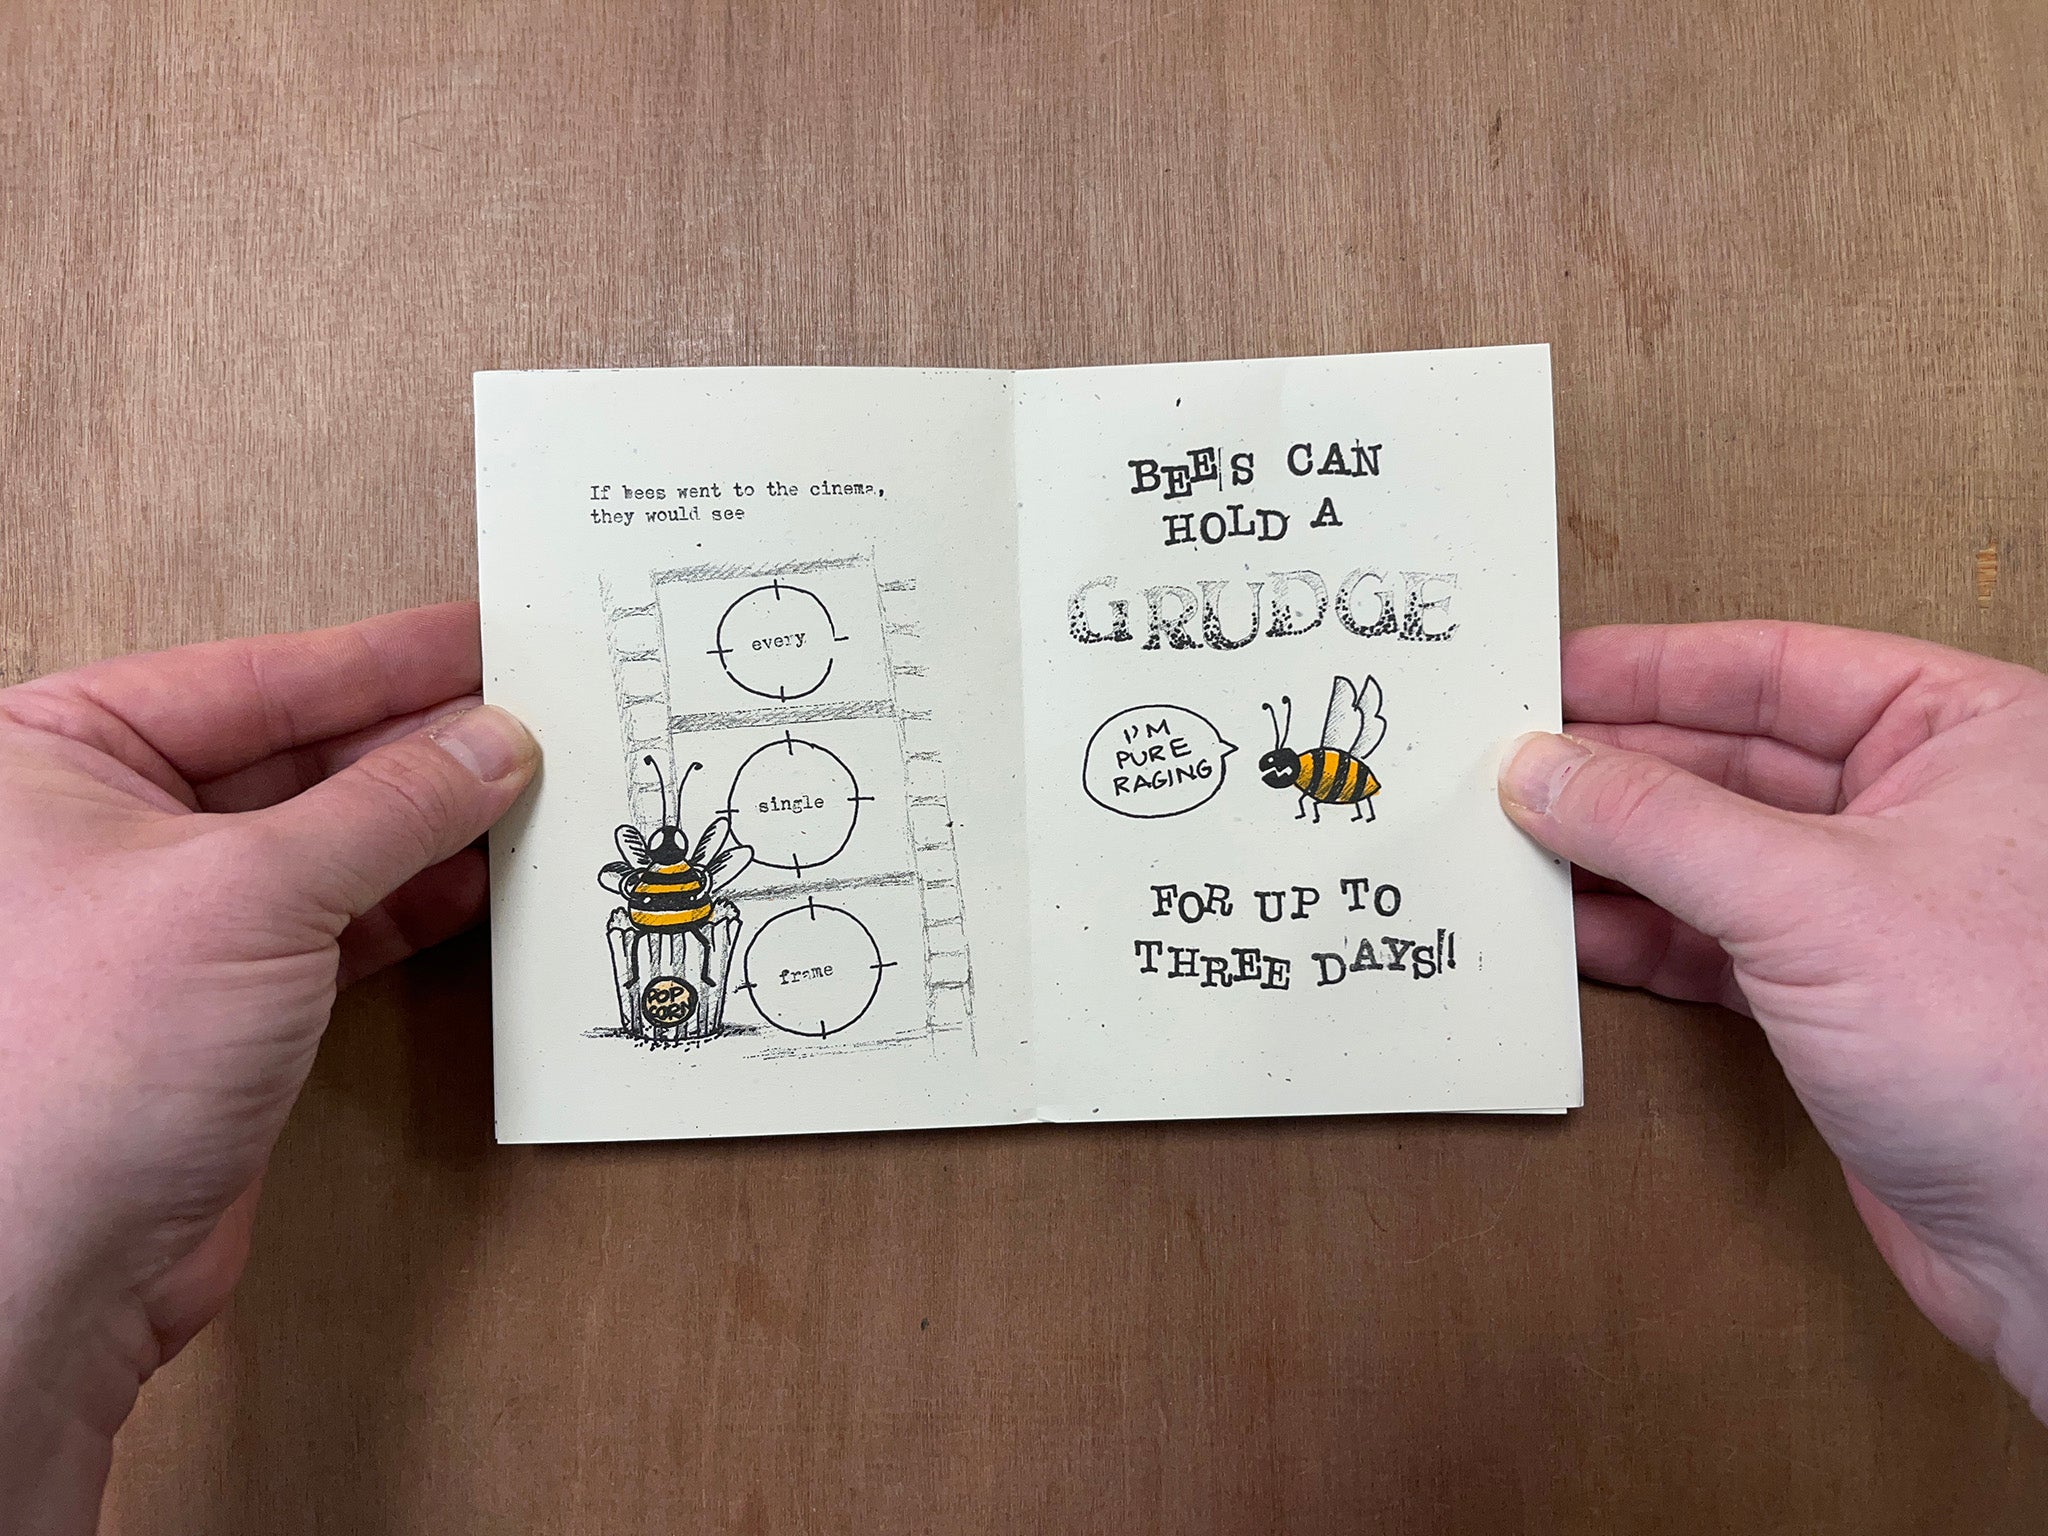 If bees went to the cinema,
they would see
every
single
frame
POP
CORN
BEES CAN
HOLD A
GRUDGE
I'M
PURE
RAGING
FOR UP TO
THREE DAYS!!